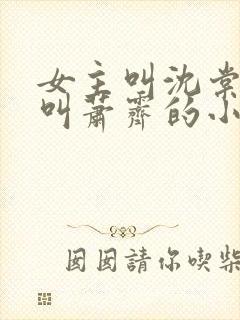 女主叫沈棠
叫蕭霽的小
囡囡請你喫柴